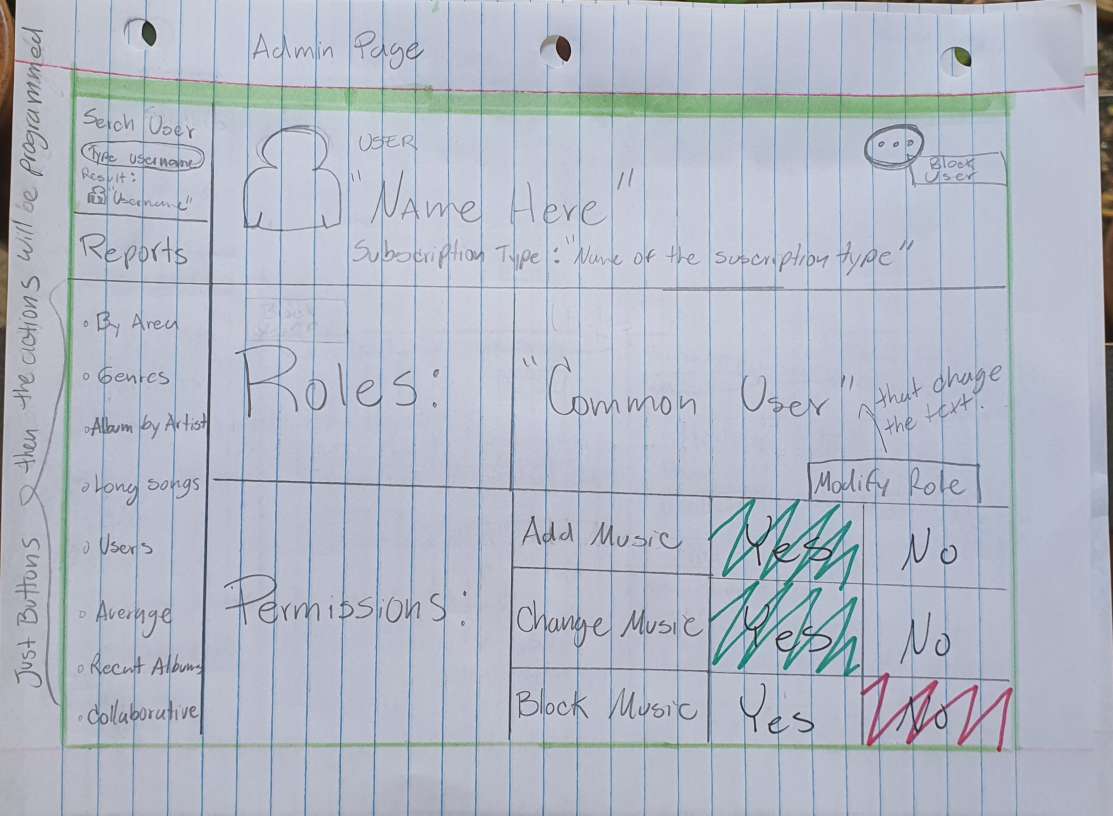 Admin Page
Just Buttons then the actions will be programmed
Serch User
Type username
Result:
"Username"
Reports
• By Area
• Genres
• Album by Artist
• Long songs
• Users
• Average
• Recent Albums
• Collaborative
USER
"Name Here"
Subscription Type: "Name of the suscription type"
Block
User
Roles:
"Common User"
that chage
the text.
Modify Role
Permissions:
Add Music Yes No
Change Music Yes No
Block Music Yes No